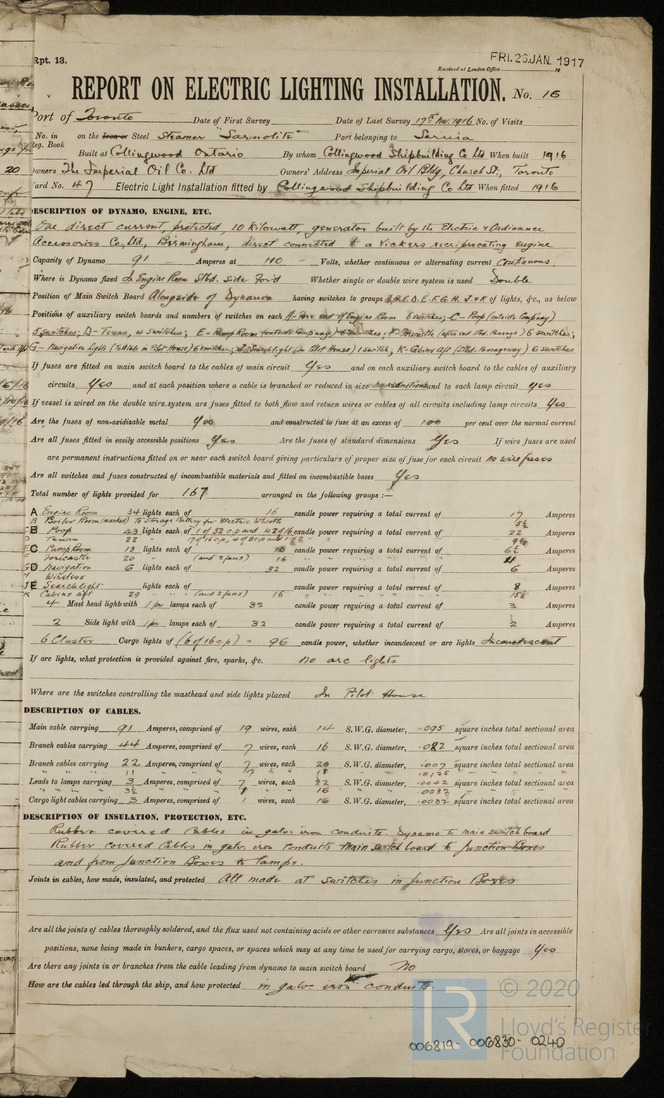 Rpt. 13.
FRI. 26 JAN. 1917
Received at London Office
REPORT ON ELECTRIC LIGHTING INSTALLATION. No. 16
Port of Toronto Date of First Survey Date of Last Survey 17th Nov. 1916 No. of Visits
No. in on the Iron or Steel Steamer "Sarnolite" Port belonging to Sarnia
Reg. Book
Built at Collingwood Ontario By whom Collingwood Shipbuilding Co Ltd When built 1916
Owners The Imperial Oil Co. Ltd Owners' Address Imperial Oil Bldg, Church St., Toronto
Yard No. 47 Electric Light Installation fitted by Collingwood Shipbuilding Co Ltd When fitted 1916
DESCRIPTION OF DYNAMO, ENGINE, ETC.
One direct current, protected, 10 Kilowatt, generator built by the Electric & Ordinance
Accessories Co, Ltd, Birmingham, direct connected to a Vickers reciprocating engine
Capacity of Dynamo 91 Amperes at 110 Volts, whether continuous or alternating current Continuous
Where is Dynamo fixed In Engine Room Stbd. side Ford Whether single or double wire system is used Double
Position of Main Switch Board Alongside of Dynamo having switches to groups A, B, D, E, F, G, H, J & K of lights, &c., as below
Positions of auxiliary switch boards and numbers of switches on each A - Fore end of Engine Room 6 switches; C - Poop (outside Company)
5 switches; D - Texas, 4 switches; E - Pump Room (outside Company) 6 switches; F - Forecastle (after end Stbd. Passage) 6 switches;
G - Navigation Lights (Telltale in Pilot House) 6 switches; J - Searchlight (in Pilot House) 1 switch; K - Cabins Aft (Stbd. Passageway) 6 switches
If fuses are fitted on main switch board to the cables of main circuit Yes and on each auxiliary switch board to the cables of auxiliary
circuits Yes and at each position where a cable is branched or reduced in size and to each lamp circuit yes
If vessel is wired on the double wire system are fuses fitted to both flow and return wires or cables of all circuits including lamp circuits Yes
Are the fuses of non-oxidizable metal Yes and constructed to fuse at an excess of 100 per cent over the normal current
Are all fuses fitted in easily accessible positions Yes Are the fuses of standard dimensions Yes If wire fuses are used
are permanent instructions fitted on or near each switch board giving particulars of proper size of fuse for each circuit no wire fuses
Are all switches and fuses constructed of incombustible materials and fitted on incombustible bases Yes
Total number of lights provided for 167 arranged in the following groups :—
A Engine Room 34 lights each of 16 candle power requiring a total current of 17 Amperes
B Boiler Room to Storage Battery for Electric 5½
B Poop 43 lights each of 1 of 32 c.p and 42 of 16 candle power requiring a total current of 22 Amperes
D Texas 22
C Pump Room 13 lights each of 16 candle power requiring a total current of 6½ Amperes
Forecastle 20 (and 2 fans) 16 11
D Navigation 6 lights each of 32 candle power requiring a total current of 6 Amperes
H Wireless
E Searchlight lights each of candle power requiring a total current of 8 Amperes
K Cabins aft 29 (and 2 fans) 16 15½
4 Mast head light with 1 pr lamps each of 32 candle power requiring a total current of 3 Amperes
2 Side light with 1 pr lamps each of 32 candle power requiring a total current of 2 Amperes
6 Cluster Cargo lights of (6 of 16 c.p) = 96 candle power, whether incandescent or arc lights Incandescent
If arc lights, what protection is provided against fire, sparks, &c. No arc lights
Where are the switches controlling the masthead and side lights placed In Pilot House
DESCRIPTION OF CABLES.
Main cable carrying 91 Amperes, comprised of 19 wires, each 14 S.W.G. diameter, .095 square inches total sectional area
Branch cables carrying 44 Amperes, comprised of 7 wires, each 16 S.W.G. diameter, .022 square inches total sectional area
Branch cables carrying 22 Amperes, comprised of 7 wires, each 20 S.W.G. diameter, .007 square inches total sectional area
" " " 11 " " 7 " " 18 " " .0125
Leads to lamps carrying 3 Amperes, comprised of 7 wires, each 22 S.W.G. diameter, .0042 square inches total sectional area
" " " 3½ " " 1 " " 16 " " .0032
Cargo light cables carrying 3 Amperes, comprised of 1 wires, each 16 S.W.G. diameter, .0032 square inches total sectional area
DESCRIPTION OF INSULATION, PROTECTION, ETC.
Rubber covered cables in galv. iron conduits Dynamo to main switchboard
Rubber covered Cables in galv. iron conduits Main switch board to Junction Boxes
and from Junction Boxes to lamps.
Joints in cables, how made, insulated, and protected All made at switches in Junction Boxes
Are all the joints of cables thoroughly soldered, and the flux used not containing acids or other corrosive substances Yes Are all joints in accessible
positions, none being made in bunkers, cargo spaces, or spaces which may at any time be used for carrying cargo, stores, or baggage Yes
Are there any joints in or branches from the cable leading from dynamo to main switch board No
How are the cables led through the ship, and how protected in galv. iron conduits
© 2020
LR
Lloyd's Register
Foundation
006819- 006830- 0240